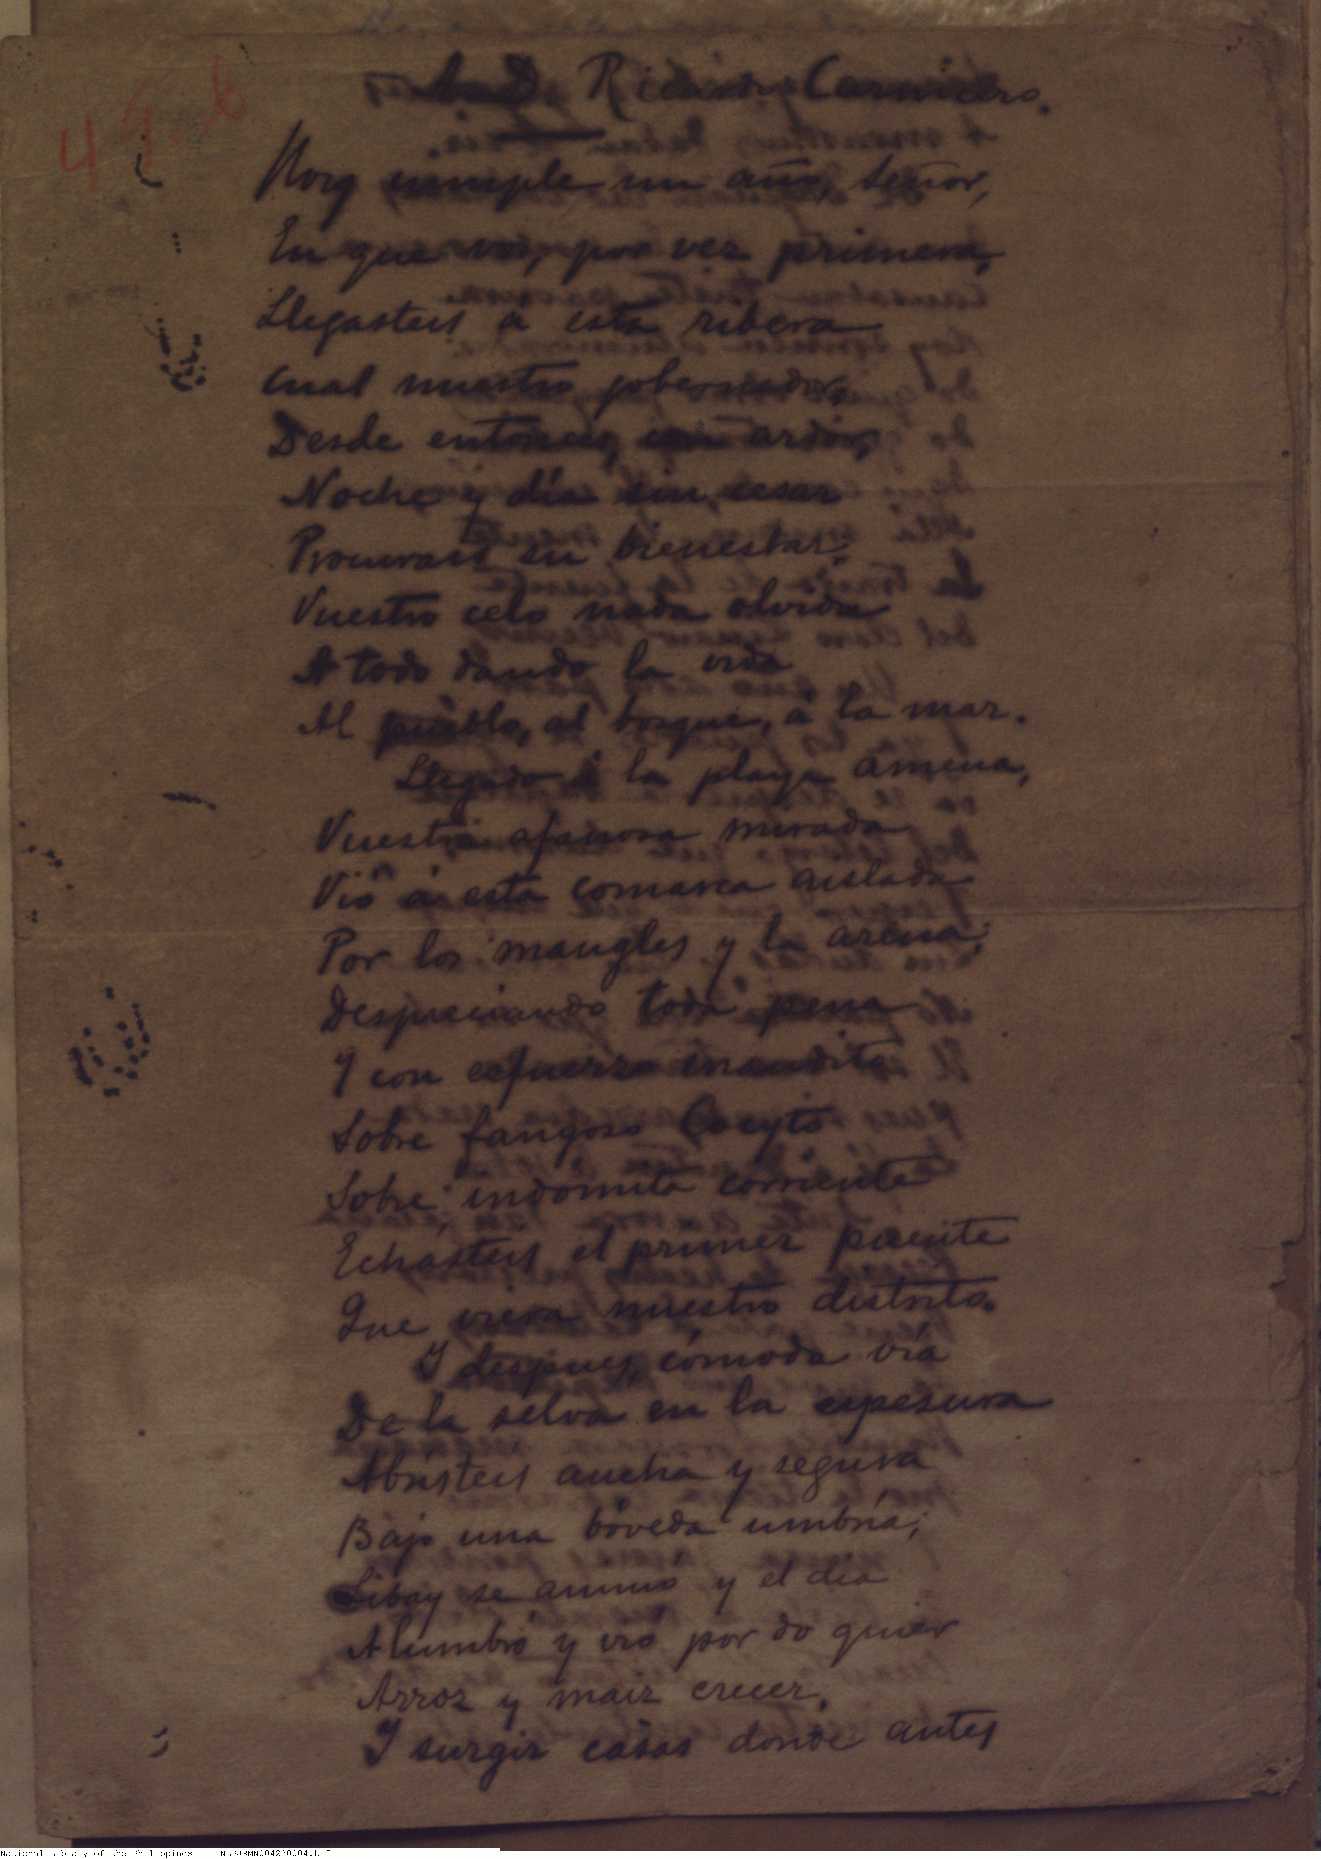 49. b
A D. Ricardo Carnicero.
Hoy cumple un año, Señor,
En que vos, por vez primera,
Llegasteis a esta ribera
Cual nuestro gobernador,
Desde entonces, con ardor,
Noche y día sin cesar
Procurais su bienestar;
Vuestro celo nada olvida
A todo dando la vida
Al pueblo, al bosque, á la mar.
Llegado á la playa amena,
Vuestra afanosa mirada
Vió á esta comarca aislada
Por los mangles y la arena;
Despreciando toda pena
Y con esfuerzo inaudito
Sobre fangoso Cocyto
Sobre indómita corriente
Echásteis el primer puente
Que viera nuestro distrito.
Y despues, cómoda vía
De la selva en la espesura
Abristeis ancha y segura
Bajo una bóveda umbría;
Libay se animó y el día
Alumbró y vió por do quier
Arroz y maiz crecer,
Y surgir casas donde antes
National Library of the Philippines